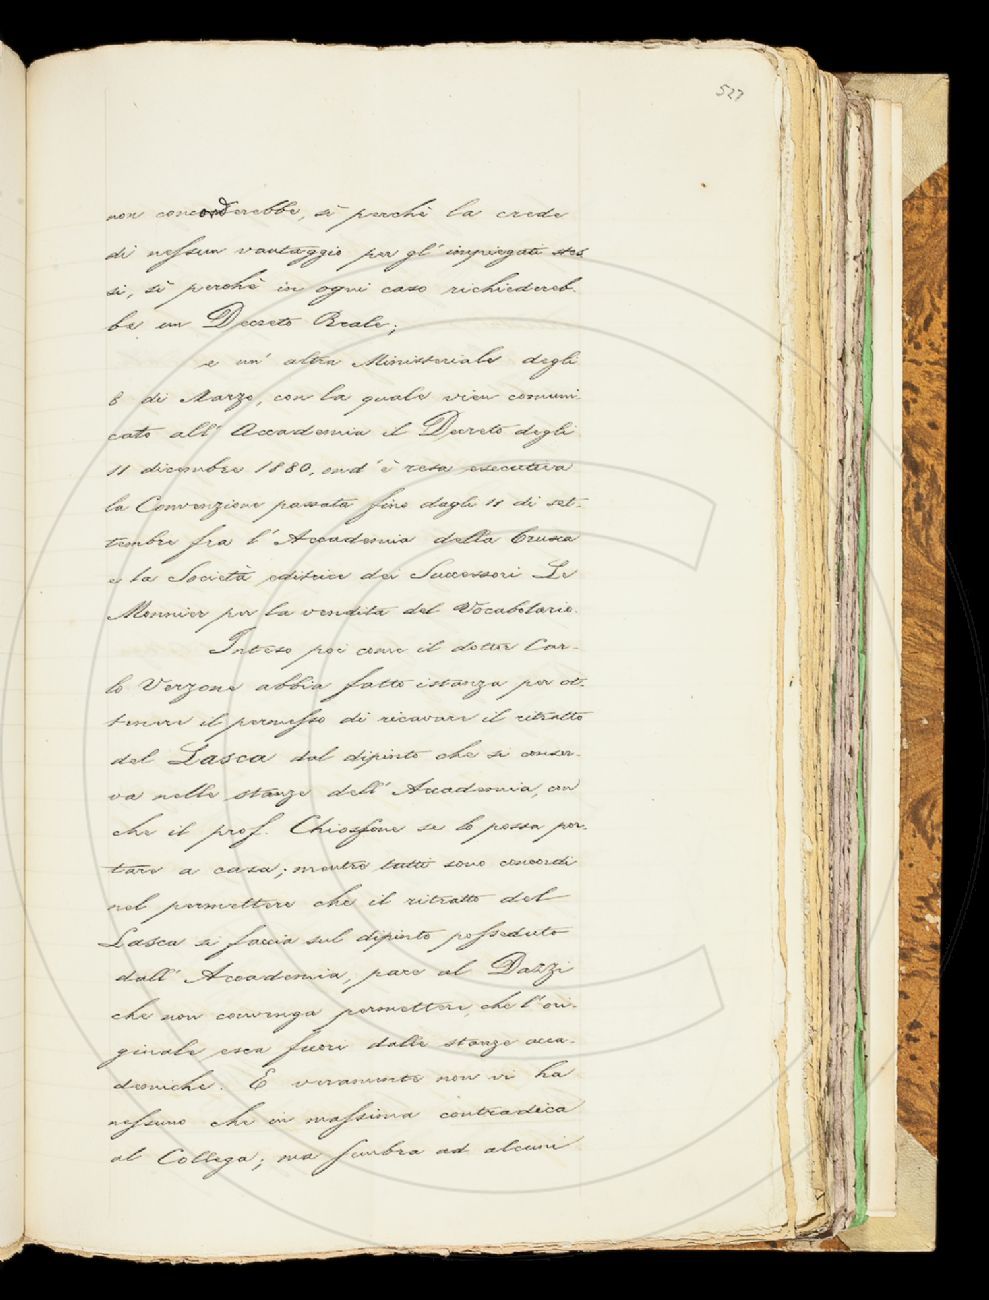 527
non concorderebbe, sì perchè la crede
di nessun vantaggio per gl'impiegati stes
si, sì perchè in ogni caso richiedereb-
be un Decreto Reale;
e un' altra Ministeriale degli
8 di Marzo, con la quale vien comuni-
cato all' Accademia il Decreto degli
11 dicembre 1880, ond' è resa esecutiva
la Convenzione passata fino dagli 11 di set-
tembre fra l' Accademia della Crusca
e la Società editrice dei Successori Le
Monnier per la vendita del Vocabolario.
Inteso poi come il dottor Car-
lo Verzone abbia fatto istanza per ot-
tenere il permesso di ricavare il ritratto
del Lasca dal dipinto che si conser-
va nelle stanze dell' Accademia, con
che il prof. Chiossone se lo possa por-
tare a casa; mentre tutti sono concordi
nel permettere che il ritratto del
Lasca si faccia sul dipinto posseduto
dall' Accademia, pare al Dazzi
che non convenga permettere, che l' ori-
ginale esca fuori dalle stanze acca-
demiche. E veramente non vi ha
nessuno che in massima contradica
al Collega; ma sembra ad alcuni